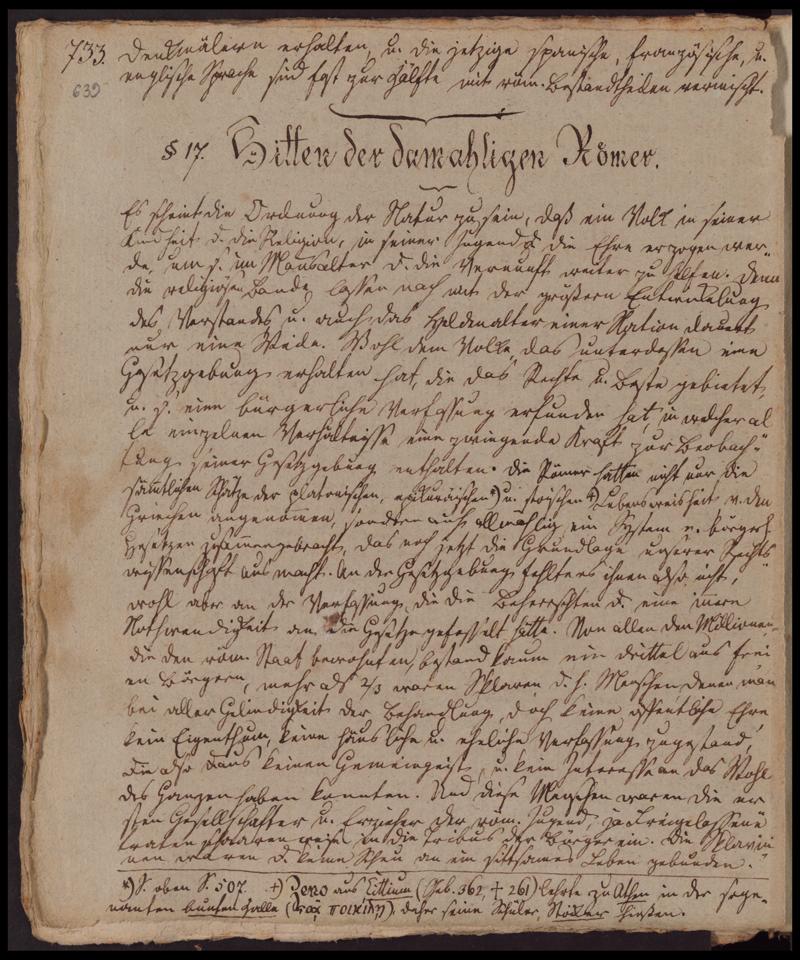 733. Denkmälern erhalten, u. die jetzige spanische, französische, u.
639 englische Sprache sind fast zur Hälfte mit röm. Bestandtheilen vermischt.
§ 17. Sitten der damahligen Römer.
Es scheint die Ordnung der Natur zu sein, daß ein Volk in seiner
Kindheit d. die Religion, in seiner Jugend d. die Ehre erzogen wer-
de, um s. im Mansalter d. die Vernunft weiter zu helfen. Denn
die religiösen Bande lassen nach mit der größern Entwickelung
des Verstandes u. auch das Heldenalter einer Nation dauert
nur eine Weile. Wohl dem Volke, das unterdessen eine
Gesetzgebung erhalten hat, die das Rechte u. Beste gebietet,
u. s. eine bürgerliche Verfassung erfunden hat, in welcher al
le einzelnen Verhältnisse eine zwingende Kraft zur Beobach-
tung seiner Gesetzgebung enthalten. Die Römer hatten nicht nur die
sämtlichen Schätze der platonischen, epikuräischen *) u. stoischen +) Lebensweisheit v. den
Griechen angenommen, sondern auch allmählig ein System v. bürgerl.
Gesetzen zusammengebracht, das noch jetzt die Grundlage unserer Rechts-
wissenschaft aus macht. An der Gesetzgebung fehlte es ihnen also nicht,
wohl aber an der Verfassung, die die Beherrschten d. eine innere
Nothwendigkeit an die Gesetze gefesselt hätte. Von allen den Millionen,
die den röm. Staat bewohnten, bestand kaum ein drittel aus frei
en Bürgern, mehr als 2/3 waren Sklaven, d. h. Menschen denen man
bei aller Gelindigkeit der Behandlung, doch keine öffentliche Ehre
kein Eigenthum, keine häusliche u. eheliche Verfassung zugestand,
die also keinen Gemeingeist, u. kein Interesse an das Wohl
des Ganzen haben konnten. Und diese Menschen waren die er
sten Gesellschafter u. Erzieher der röm. Jugend, ja Freigelassene
traten schaarenweise in die Tribus der Bürger ein. Die Sklavin
nen waren d. keine Scheu an ein sittsames Leben gebunden.
*) S. oben S. 507. +) Zeno aus Cittium (Geb. 362, † 261) lehrte zu Athen in der soge-
nanten bunten Halle (στοα ποικιλη), daher seine Schüler, Stoiker hießen.